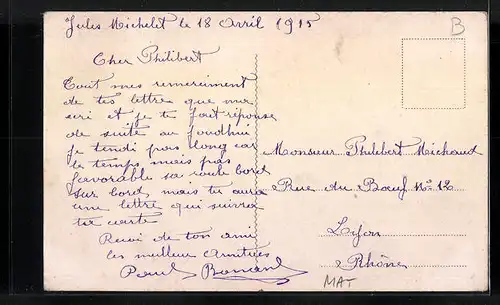 Jules Michelet le 18 Avril 1915
B
Cher Philibert
Tout mes remerciment
de tes lettre que me
scri et je te fait réponse
de suite au joudhui
je tendi pas long car
le temps mais pas
favorable sa roule bord
sur bord mais tu aura
une lettre qui suivra
ta carte
Recoi de ton ami
les meilleur Amitiées
Paul Bonand
Monsieur Philibert Michaud
Rue du Bœuf No 12
Lyon
Rhône
MAT